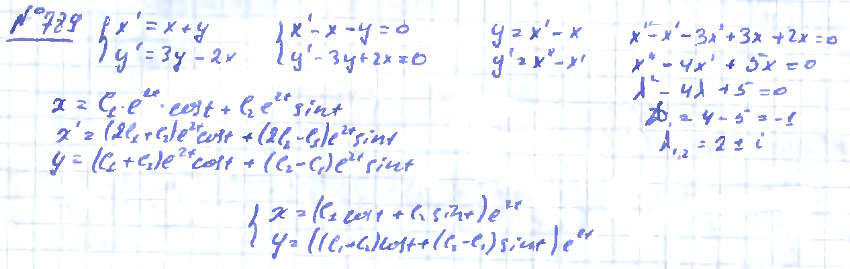 № 789
{ x' = x + y
y' = 3y - 2x
{ x' - x - y = 0
y' - 3y + 2x = 0
y = x' - x
y' = x'' - x'
x'' - x' - 3x' + 3x + 2x = 0
x'' - 4x' + 5x = 0
λ² - 4λ + 5 = 0
D₁ = 4 - 5 = -1
λ₁,₂ = 2 ± i
x = C₁·e²ᵗ·cost + C₂e²ᵗsint
x' = (2C₁+C₂)e²ᵗcost + (2C₂-C₁)e²ᵗsint
y = (C₁+C₂)e²ᵗcost + (C₂-C₁)e²ᵗsint
{ x = (C₁cost + C₂sint)e²ᵗ
y = ((C₁+C₂)cost + (C₂-C₁)sint)e²ᵗ